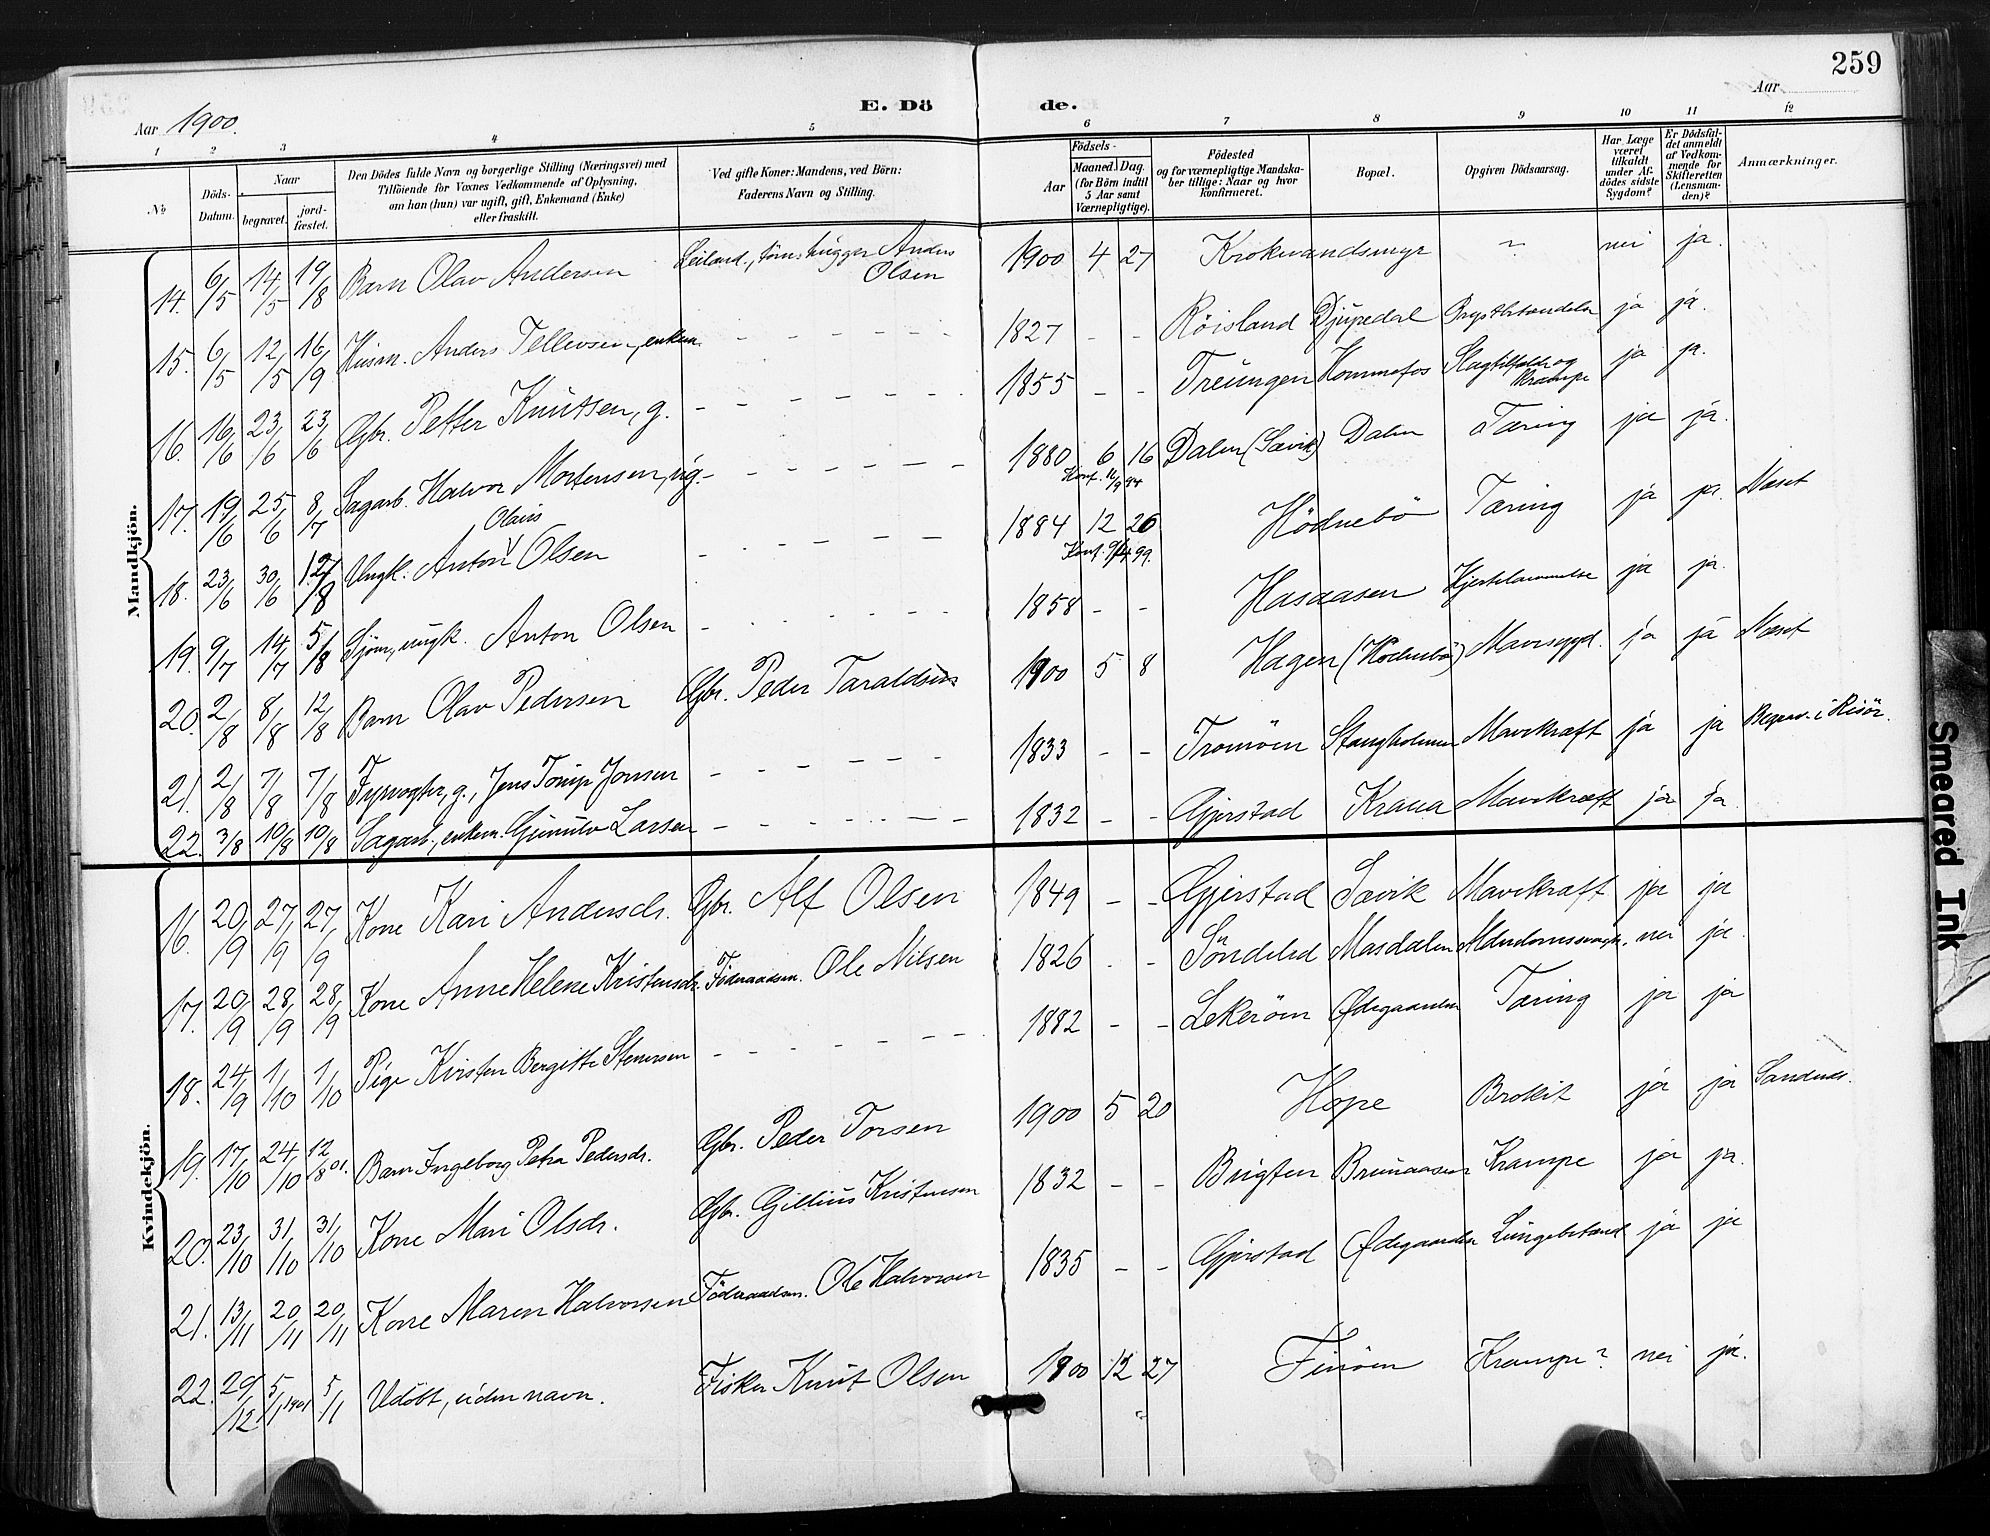 259
Aar 1900.
E. Dö
de.
Aar
1 2 3 4 5 6 7 8 9 10 11 12
№
Döds-Datum.
Naar
begravet.
jord-fæstet.
Den Dödes fulde Navn og borgerlige Stilling (Næringsvei) med
Tilföiende for Voxnes Vedkommende af Oplysning,
om han (hun) var ugift, gift, Enkemand (Enke)
eller fraskilt.
Ved gifte Koner: Mandens, ved Börn:
Faderens Navn og Stilling.
Födsels-
Aar
Maaned. Dag.
(for Börn indtil
5 Aar samt
Værnepligtige).
Födested
og for værnepligtige Mandska-
ber tillige: Naar og hvor
konfirmeret.
Bopæl.
Opgiven Dödsaarsag.
Har Læge
været
tilkaldt
under Af-
dödes sidste
Sygdom?
Er Dödsfal-
det anmeldt
af Vedkom-
mende for
Skifteretten
(Lensman-
den)?
Anmærkninger.
Mandkjön.
14. 6/5 14/5 19/8 Barn Olav Andersen Leiland., tömhugger Anders Olsen 1900 4 27 Krokvandsmyr ? nei ja.
15. 6/5 12/5 16/9 Husm. Anders Tellevsen, enkem. - - 1827 - - Röisland Djupedal ja ja.
16. 16/6 23/6 23/6 Gbr. Petter Knutsen, g. - - 1855 - - Treungen Hommefos Slagtilfælde og Krampe ja ja.
17. 19/6 25/6 8/7 Sagarb. Halvor Mortensen, ug. - - 1880 6 16 Dalen (Sævik) Dalen Tæring ja ja.
Konf. 16/9 94
18. 23/6 30/6 12/8 Ungk. Anton Olaus Olsen - - 1884 12 26 Hödnebö Tæring ja ja. Næset
Konf. 9/4 99.
19. 9/7 14/7 5/8 Sjöm, ungk. Anton Olsen - - 1858 - - Hasaasen Hjertelammelse ja ja.
20. 2/8 8/8 12/8 Barn Olav Pedersen Gbr. Peder Taraldsen 1900 5 8 Hagen (Hödnebö) Mavesygd. ja ja Næset
21. 2/8 7/8 7/8 Fyrvogter, g., Jens Torup Jonsen - - 1833 - - Tromöen Stangholmen Mavekræft ja ja Begrav. i Risör.
22. 3/8 10/8 10/8 Sagarb., enkem. Gunulv Larsen - - 1832 - - Gjerstad Krana Mavekræft ja ja
Kvindekjön.
16. 20/9 27/9 27/9 Kone Kari Andersdr. Gbr. Alf Olsen 1849 - - Gjerstad Sævik Mavekræft ja ja
17. 20/9 28/9 28/9 Kone Anne Helene Kristensdr. Föderaadsm. Ole Nilsen 1826 - - Söndeled Masdalen Alderdomssvagh. nei ja.
18. 24/9 1/10 1/10 Pige Kirsten Bergitte Stenersen - - 1882 - - Lekeröen Ödegaarden Tæring ja ja
19. 17/10 24/10 12/8 01. Barn Ingeborg Petra Pedersdr. Gbr. Peder Torsen 1900 5 20 Hope Brokit ja ja Sandnes.
20. 23/10 31/10 31/10 Kone Mari Olsdr. Gbr. Gillius Kristensen 1832 - - Bugten Brunaasen Krampe ja ja.
21. 13/11 20/11 20/11 Kone Maren Halvorsen Föderaadsm. Ole Halvorsen 1835 - - Gjerstad Ödegaarden Lungebetænd ja ja
22. 29/12 5/1 1901 5/1 Udöbt, uden navn. Fisker Knut Olsen 1900 12 27 Finöen Krampe? nei ja.
Smeared Ink